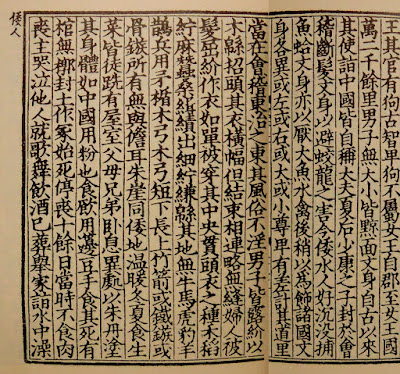 王其官有狗古智卑狗不屬女王自郡至女王國
萬二千餘里男子無大小皆黥面文身自古以來
其使詣中國皆自稱大夫夏后少康之子封於會
稽斷髮文身以避蛟龍之害今倭水人好沉没捕
魚蛤文身亦以厭大魚水禽後稍以為飾諸國文
身各異或左或右或大或小尊卑有差計其道里
當在會稽東治之東其風俗不淫男子皆露紒以
木緜招頭其衣橫幅但結束相連略無縫婦人被
髮屈紒作衣如單被穿其中央貫頭衣之種禾稻
紵麻蠶桑緝績出細紵縑緜其地無牛馬虎豹羊
鵲兵用矛楯木弓木弓短下長上竹箭或鐵鏃或
骨鏃所有無與儋耳朱崖同倭地温暖冬夏食生
菜皆徒跣有屋室父母兄弟臥息異處以朱丹塗
其身體如中國用粉也食飲用籩豆手食其死有
棺無槨封土作冢始死停喪十餘日當時不食肉
喪主哭泣他人就歌舞飲酒已葬舉家詣水中澡
倭人